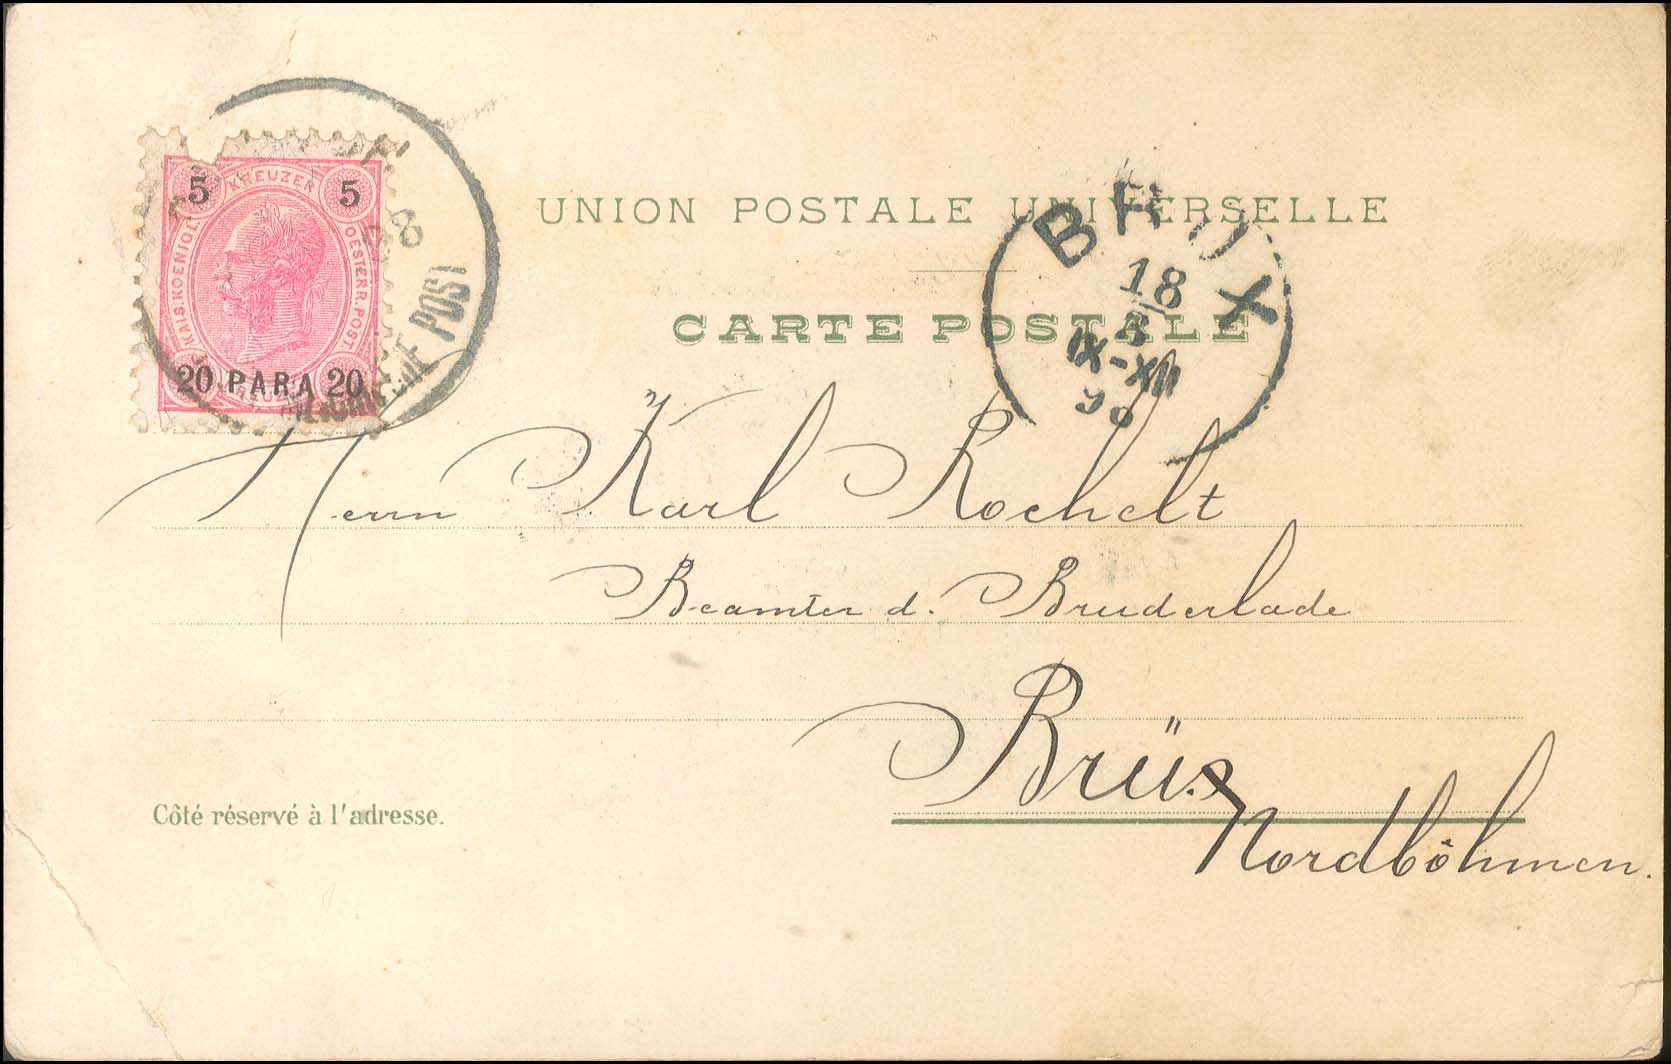 5 KREUZER 5
KAIS. KOENIGL. OESTERR. POST.
20 PARA 20
POST
98
UNION POSTALE UNIVERSELLE
CARTE POSTALE
BRÜX
18
8
IX-XII
98
Herrn Karl Rochelt
Beamter d. Bruderlade
Brüx
Nordböhmen.
Côté réservé à l'adresse.